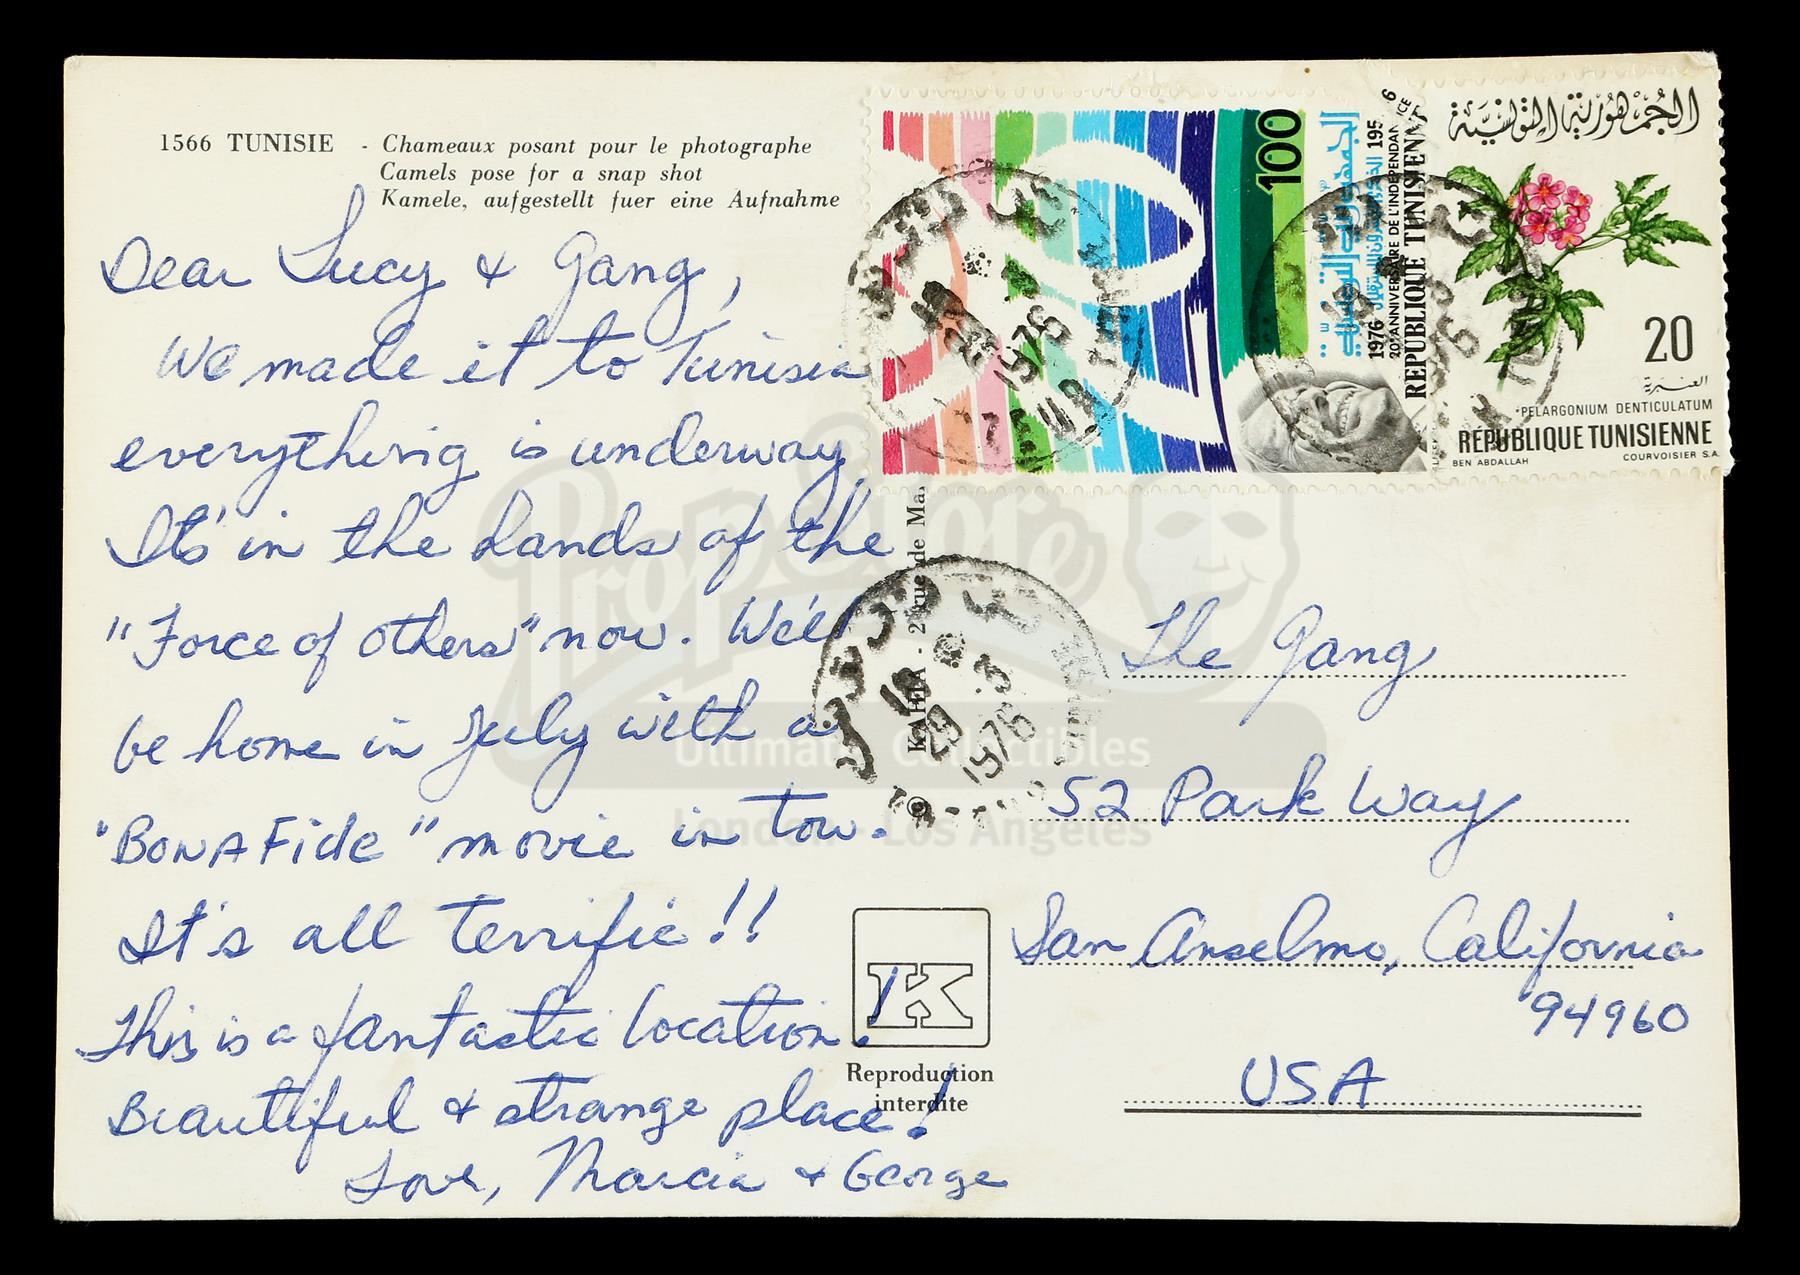 1566 TUNISIE - Chameaux posant pour le photographe
Camels pose for a snap shot
Kamele, aufgestellt fuer eine Aufnahme
Dear Lucy & Gang,
We made it to Tunisia
everything is underway
It's in the hands of the
"Force of others" now. We'll
be home in July with a
"BONA Fide" movie in tow.
It's all terrific!!
This is a fantastic location!
Beautiful & strange place!
Love, Marcia & George
100
الجمهورية التونسية
1976
20e ANNIVERSAIRE DE L'INDEPENDANCE
REPUBLIQUE TUNISIENNE
الجمهورية التونسية
20
PELARGONIUM DENTICULATUM
RÉPUBLIQUE TUNISIENNE
BEN ABDALLAH COURVOISIER S.A.
1976
29 .3
1976
KAHIA - 2 rue de
The Gang
52 Park Way
San Anselmo, California
94960
USA
K
Reproduction
interdite
Prop Store
Ultimate Collectibles
London - Los Angeles